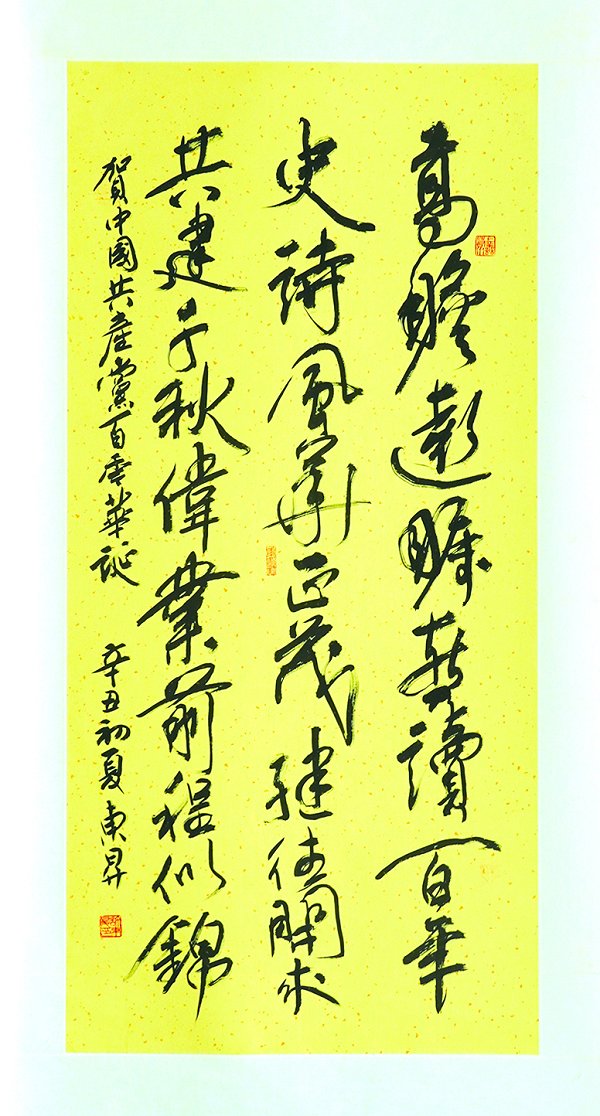 高瞻遠矚喜讀百年
史詩風華正茂繼往開來
共建千秋偉業前程似錦
賀中國共產黨百年華誕 辛丑初夏東昇